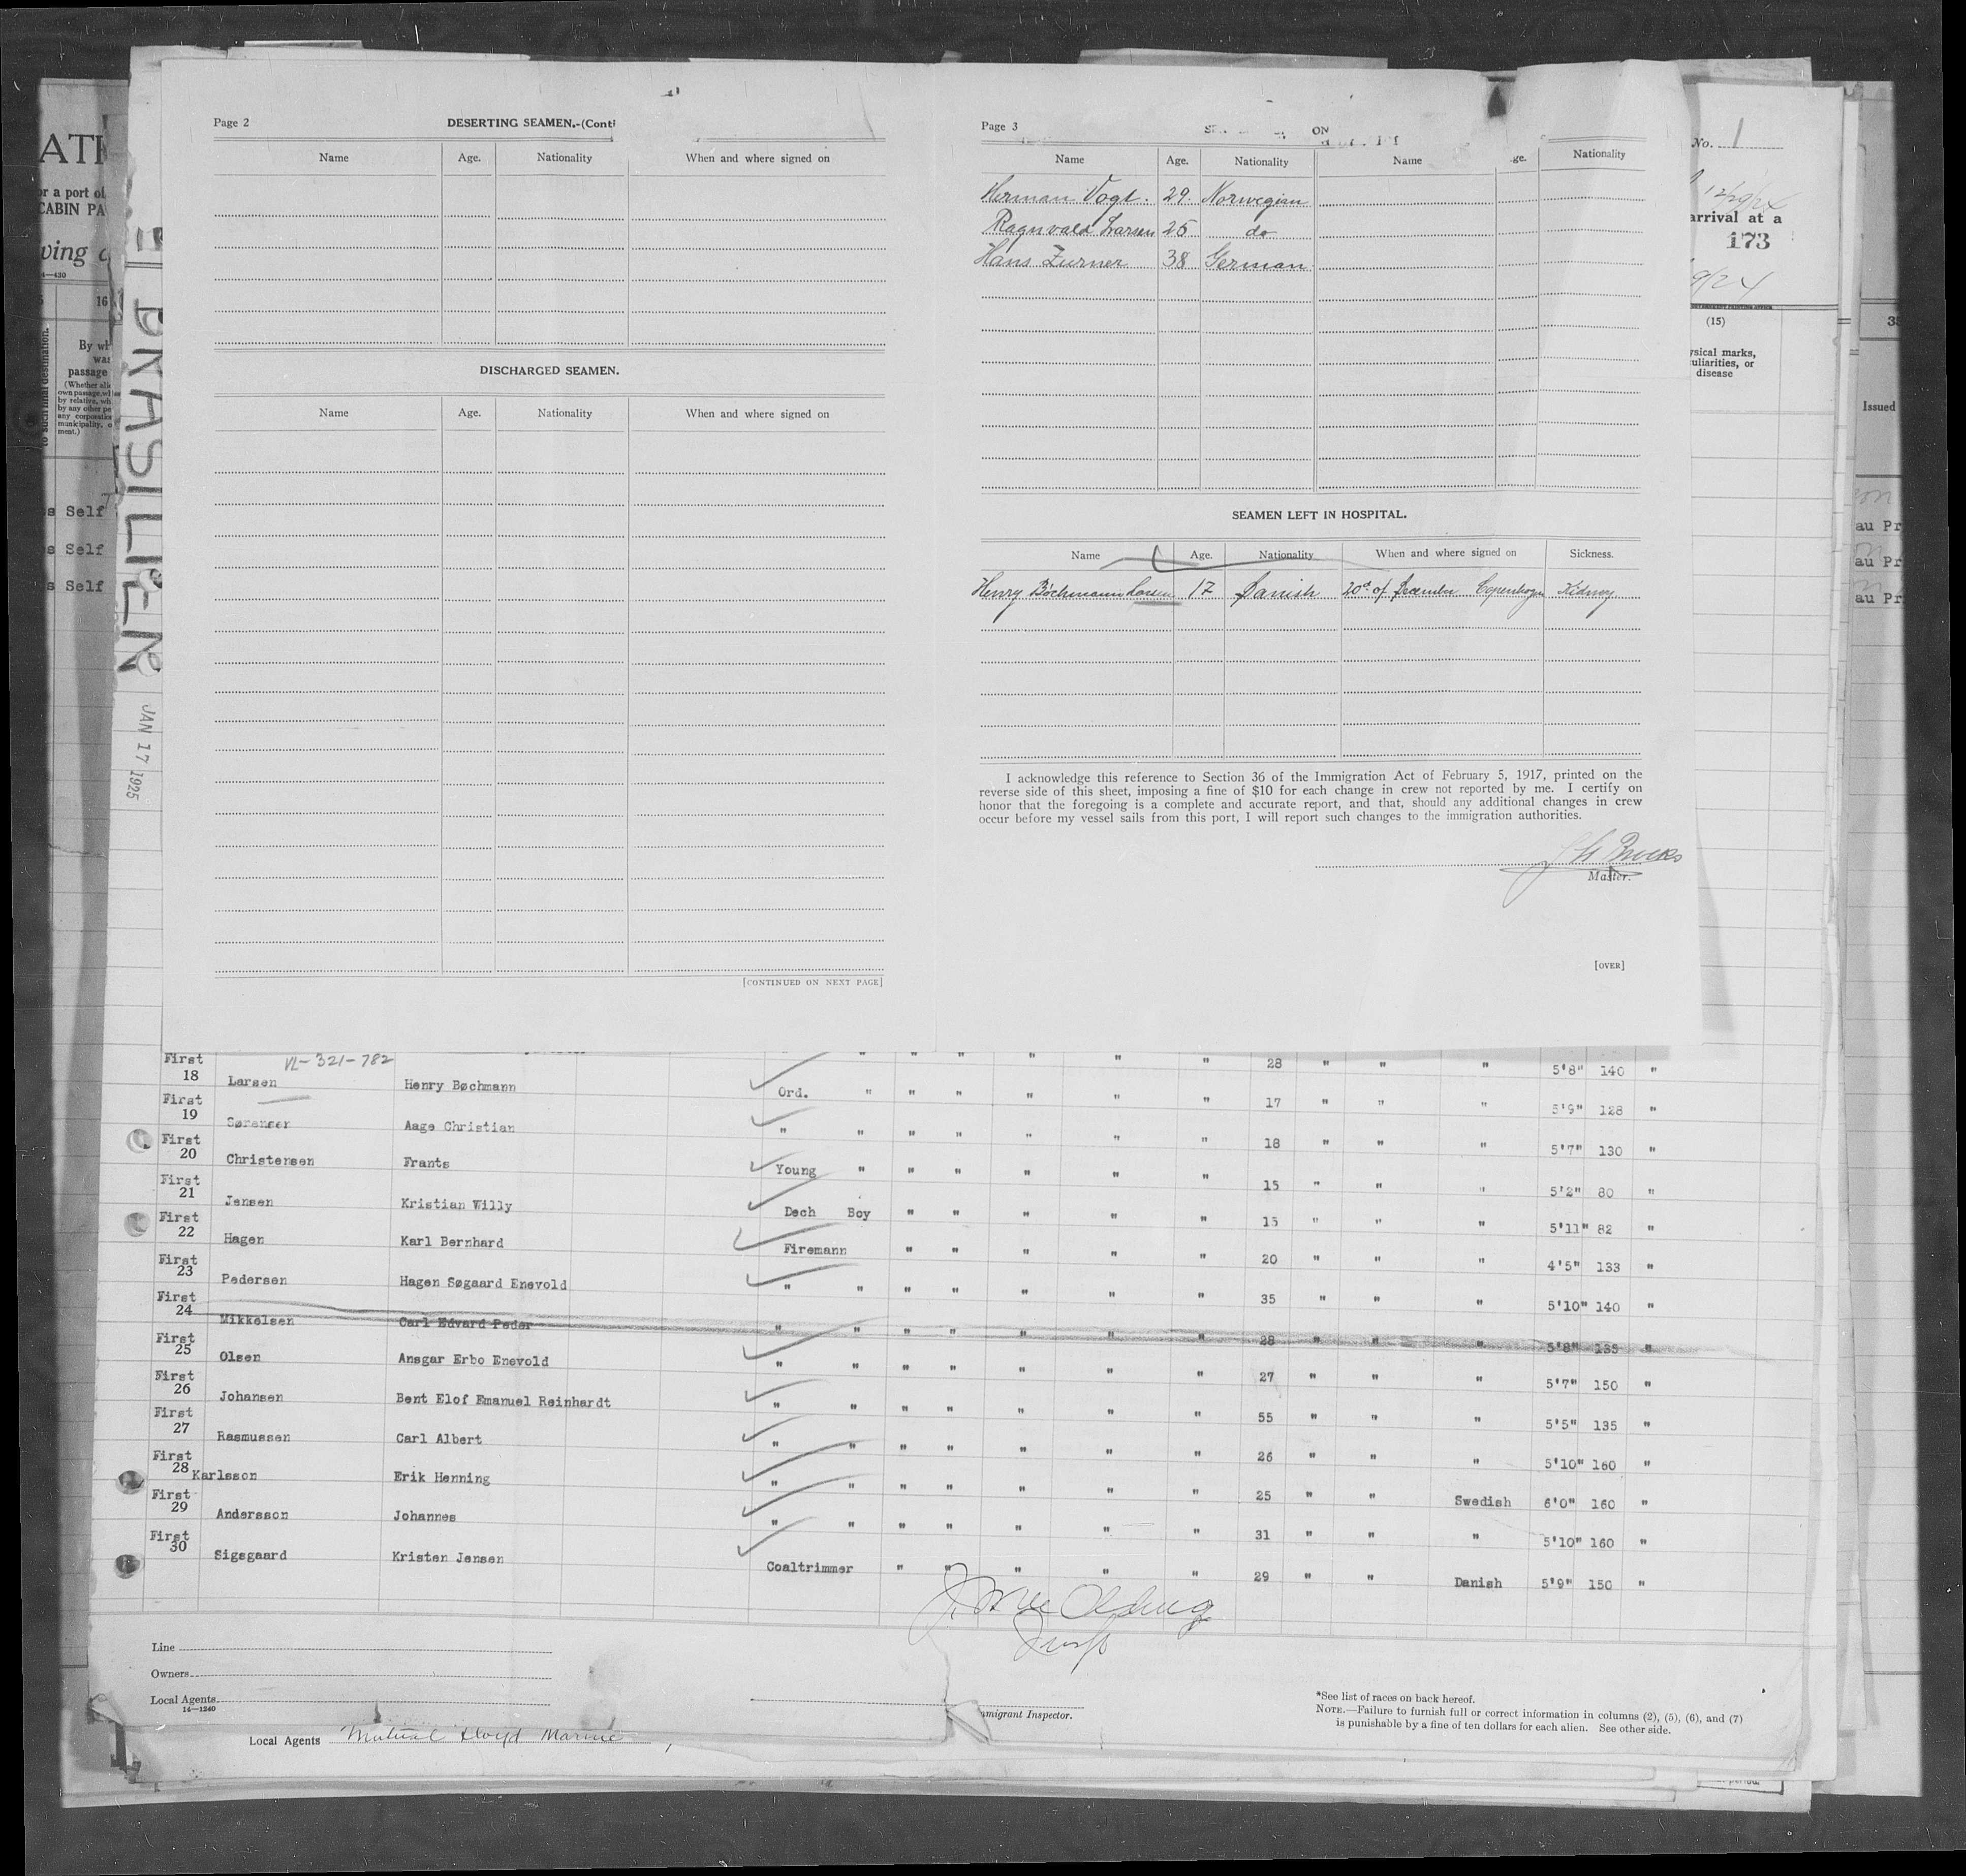 Page 2
DESERTING SEAMEN.-(Cont
Name Age. Nationality When and where signed on
DISCHARGED SEAMEN.
Name Age. Nationality When and where signed on
[CONTINUED ON NEXT PAGE]
Page 3
ON
Name Age. Nationality Name ge. Nationality
Herman Vogt. 29. Norwegian
Ragnvald Larsen 25 do
Hans Zurner 38 German
SEAMEN LEFT IN HOSPITAL.
Name Age. Nationality When and where signed on Sickness.
Henry Böchmann Larsen 17 Danish 20d of December Copenhagen Kidney.
I acknowledge this reference to Section 36 of the Immigration Act of February 5, 1917, printed on the
reverse side of this sheet, imposing a fine of $10 for each change in crew not reported by me. I certify on
honor that the foregoing is a complete and accurate report, and that, should any additional changes in crew
occur before my vessel sails from this port, I will report such changes to the immigration authorities.
Master.
[OVER]
ATI
or a port of
CABIN PA
ving
4-430
16
to such final destination.
By wh
was
passage
(Whether alie
own passage, wh
by relative, wh
by any other pe
any corporation
municipality, o
ment.)
s Self
s Self
s Self
BRASILIEN
JAN 17 1925
No. 1
arrival at a
173
9/24
(15)
ysical marks,
uliarities, or
disease
Issued
au Pr
au Pr
au Pr
VL-321-782
First " " " " " " 28 " " " 5'8" 140 "
18 Larsen Henry Bøchmann Ord. " " " " " " 17 " " " 5'9" 128 "
First
19 Sørensen Aage Christian " " " " " " " 18 " " " 5'7" 130 "
First
20 Christensen Frants Young " " " " " " 15 " " " 5'2" 80 "
First
21 Jensen Kristian Willy Dech Boy " " " " " 15 " " " 5'11" 82 "
First
22 Hagen Karl Bernhard Firemann " " " " " 20 " " " 4'5" 133 "
First
23 Pedersen Hagen Søgaard Enevold " " " " " " " 35 " " " 5'10" 140 "
First
24 Mikkelsen Carl Edvard Peder " " " " " " " 28 " " " 5'8" 135 "
First
25 Olsen Ansgar Erbo Enevold " " " " " " " 27 " " " 5'7" 150 "
First
26 Johansen Bent Elof Emanuel Reinhardt " " " " " " " 55 " " " 5'5" 135 "
First
27 Rasmussen Carl Albert " " " " " " " 26 " " " 5'10" 160 "
First
28 Karlsson Erik Henning " " " " " " " 25 " " Swedish 6'0" 160 "
First
29 Andersson Johannes " " " " " " " 31 " " " 5'10" 160 "
First
30 Sigsgaard Kristen Jensen Coaltrimmer " " " " " 29 " " Danish 5'9" 150 "
Insp
Line
Owners
Local Agents
14-1240
mmigrant Inspector.
*See list of races on back hereof.
NOTE.—Failure to furnish full or correct information in columns (2), (5), (6), and (7)
is punishable by a fine of ten dollars for each alien. See other side.
Local Agents Mutual Lloyd Marine